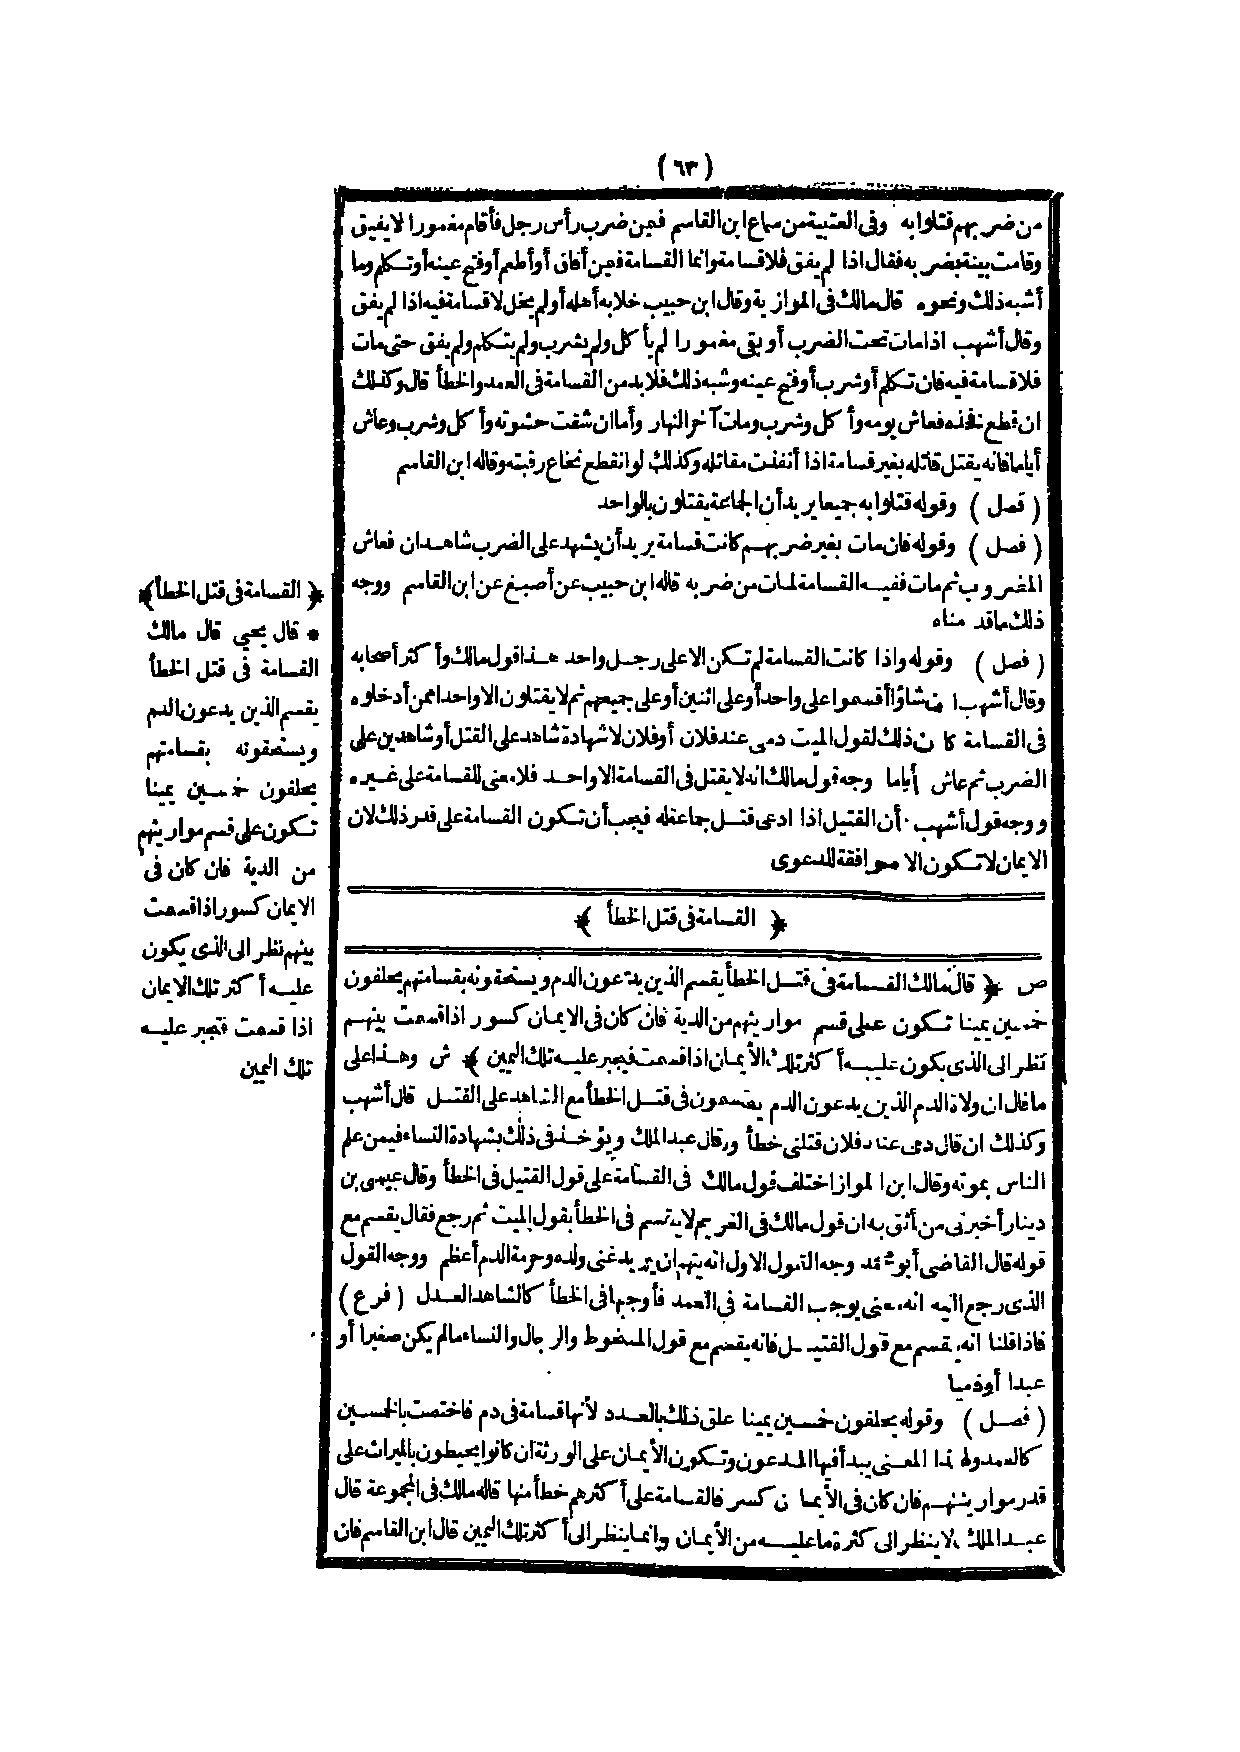 (٦٣)
من ضربهم قتلوا به وفى العتبية من سماع ابن القاسم فيمن ضرب رأس رجل فأقام مغمورا لا يفيق
وقامت بينة بضربه فقال اذا لم يفق فلا قسامة وانما القسامة فيمن أفاق أو أطعم أو فتح عينه أو تكلم وما
أشبه ذلك ونحوه قال مالك فى الموازية وقال ابن حبيب خلا به أهله أو لم يخل لا قسامة فيه اذا لم يفق
وقال أشهب اذا مات تحت الضرب أو بقى مغمورا لم يأكل ولم يشرب ولم يتكلم ولم يفق حتى مات
فلا قسامة فيه فان تكلم أو شرب أو فتح عينه وشبه ذلك فلا بد من القسامة فى العمد والخطأ قال وكذلك
ان قطع فخذه فعاش يومه وأكل وشرب ومات آخر النهار وأما ان شقت حشوته وأكل وشرب وعاش
أياما فانه يقتل قاتله بغير قسامة اذا أنفذت مقاتله وكذلك لو انقطع نخاع رقبته وقاله ابن القاسم
(فصل) وقوله قتلوا به جميعا يريد أن الجماعة يقتلون بالواحد
(فصل) وقوله فان مات بغير ضربهم كانت قسامة يريد أن يشهد على الضرب شاهدان فعاش
المضروب ثم مات ففيه القسامة لمات من ضربه قاله ابن حبيب عن أصبغ عن ابن القاسم ووجه
ذلك ما قدمناه
(فصل) وقوله واذا كانت القسامة لم تكن الا على رجل واحد هذا قول مالك وأكثر أصحابه
وقال أشهب ان شاؤا أقسموا على واحد أو على اثنين أو على جميعهم ثم لا يقتلون الا واحدا ممن أدخلوه
فى القسامة كان ذلك لقول الميت دمى عند فلان أو فلان لا شهادة شاهد على القتل أو شاهدين على
الضرب ثم عاش أياما وجه قول مالك انه لا يقتل فى القسامة الا واحد فلا معنى للقسامة على غيره
ووجه قول أشهب أن القتيل اذا ادعى قتل جماعة له فيجب أن تكون القسامة على قدر ذلك لان
الايمان لا تكون الا موافقة للدعوى
﴿ القسامة فى قتل الخطأ ﴾
ص ﴿ قال مالك القسامة فى قتل الخطأ يقسم الذين يدعون الدم ويستحقونه بقسامتهم يحلفون
خمسين يمينا تكون على قسم مواريثهم من الدية فان كان فى الايمان كسور اذا قسمت بينهم
نظر الى الذى يكون عليه أكثر تلك الأيمان اذا قسمت فيجبر عليه تلك اليمين ﴾ ش وهذا على
ما قال ان ولاة الدم الذين يدعون الدم يقسمون فى قتل الخطأ مع الشاهد على القتل قال أشهب
وكذلك ان قال دمى عند فلان قتلنى خطأ وقال عبد الملك ويؤخذ فى ذلك بشهادة النساء فيمن علم
الناس بموته وقال ابن المواز اختلف قول مالك فى القسامة على قول القتيل فى الخطأ وقال عيسى بن
دينار أخبرنى من أثق به ان قول مالك فى الغريم لا يقسم فى الخطأ بقول الميت ثم رجع فقال يقسم مع
قوله قال القاضى أبو محمد وجه القول الاول انه يتهم ان يريد غنى ولده وحرمة الدم أعظم ووجه القول
الذى رجع اليه انه معنى يوجب القسامة فى العمد فأوجبها فى الخطأ كالشاهد العدل (فرع)
فاذا قلنا انه يقسم مع قول القتيل فانه يقسم مع قول المسخوط والرجال والنساء مالم يكن صغيرا أو
عبدا أو ذميا
(فصل) وقوله يحلفون خمسين يمينا علق ذلك بالعدد لأنها قسامة فى دم فاختصت بالخمسين
كالعمد ولهذا المعنى يبدأ فيها المدعون وتكون الأيمان على الورثة ان كانوا يحيطون بالميراث على
قدر مواريثهم فان كان فى الأيمان كسر فالقسامة على أكثرهم خطأ منها قاله مالك فى المجموعة قال
عبد الملك لا ينظر الى كثرة ما عليه من الأيمان وانما ينظر الى أكثر تلك اليمين قال ابن القاسم فان
﴿ القسامة فى قتل الخطأ ﴾
* قال يحيى قال مالك
القسامة فى قتل الخطأ
يقسم الذين يدعون الدم
ويستحقونه بقسامتهم
يحلفون خمسين يمينا
تكون على قسم مواريثهم
من الدية فان كان فى
الايمان كسور اذا قسمت
بينهم نظر الى الذى يكون
عليه أكثر تلك الايمان
اذا قسمت فتجبر عليه
تلك اليمين